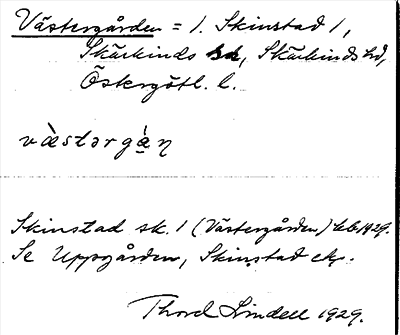 Västergården = 1. Skinstad 1,
Skärkinds sn, Skärkinds hd,
Östergötl. l.
væ̀stərgạ̀ṇ
Skinstad sk. 1 (Västergården) kb. 1929.
Se Uppgården, Skinstad etc.
Thord Lindell 1929.